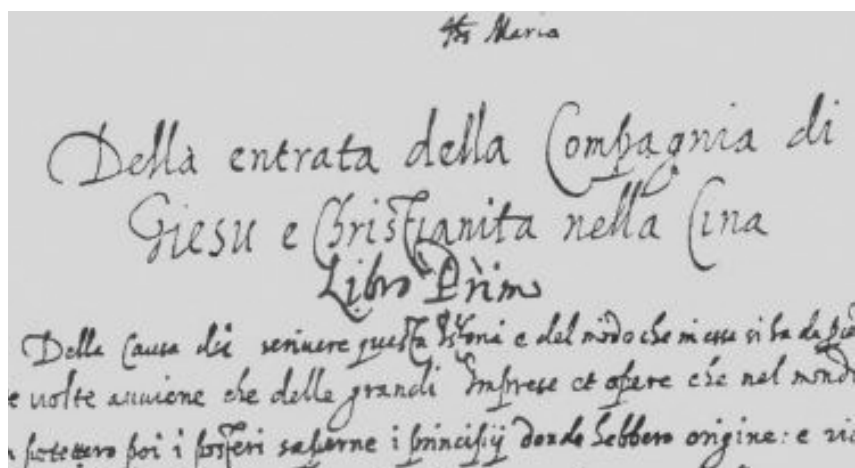 Jhs Maria
Della entrata della Compagnia di
Giesu e Christianita nella Cina
Libro Primo
Della causa di scrivere questa Istoria e del modo che in essa si ha da
e volte auuiene che delle grandi Imprese et opere che nel mondo
potettero poi i posteri saperne i principij donde hebbero origine: e